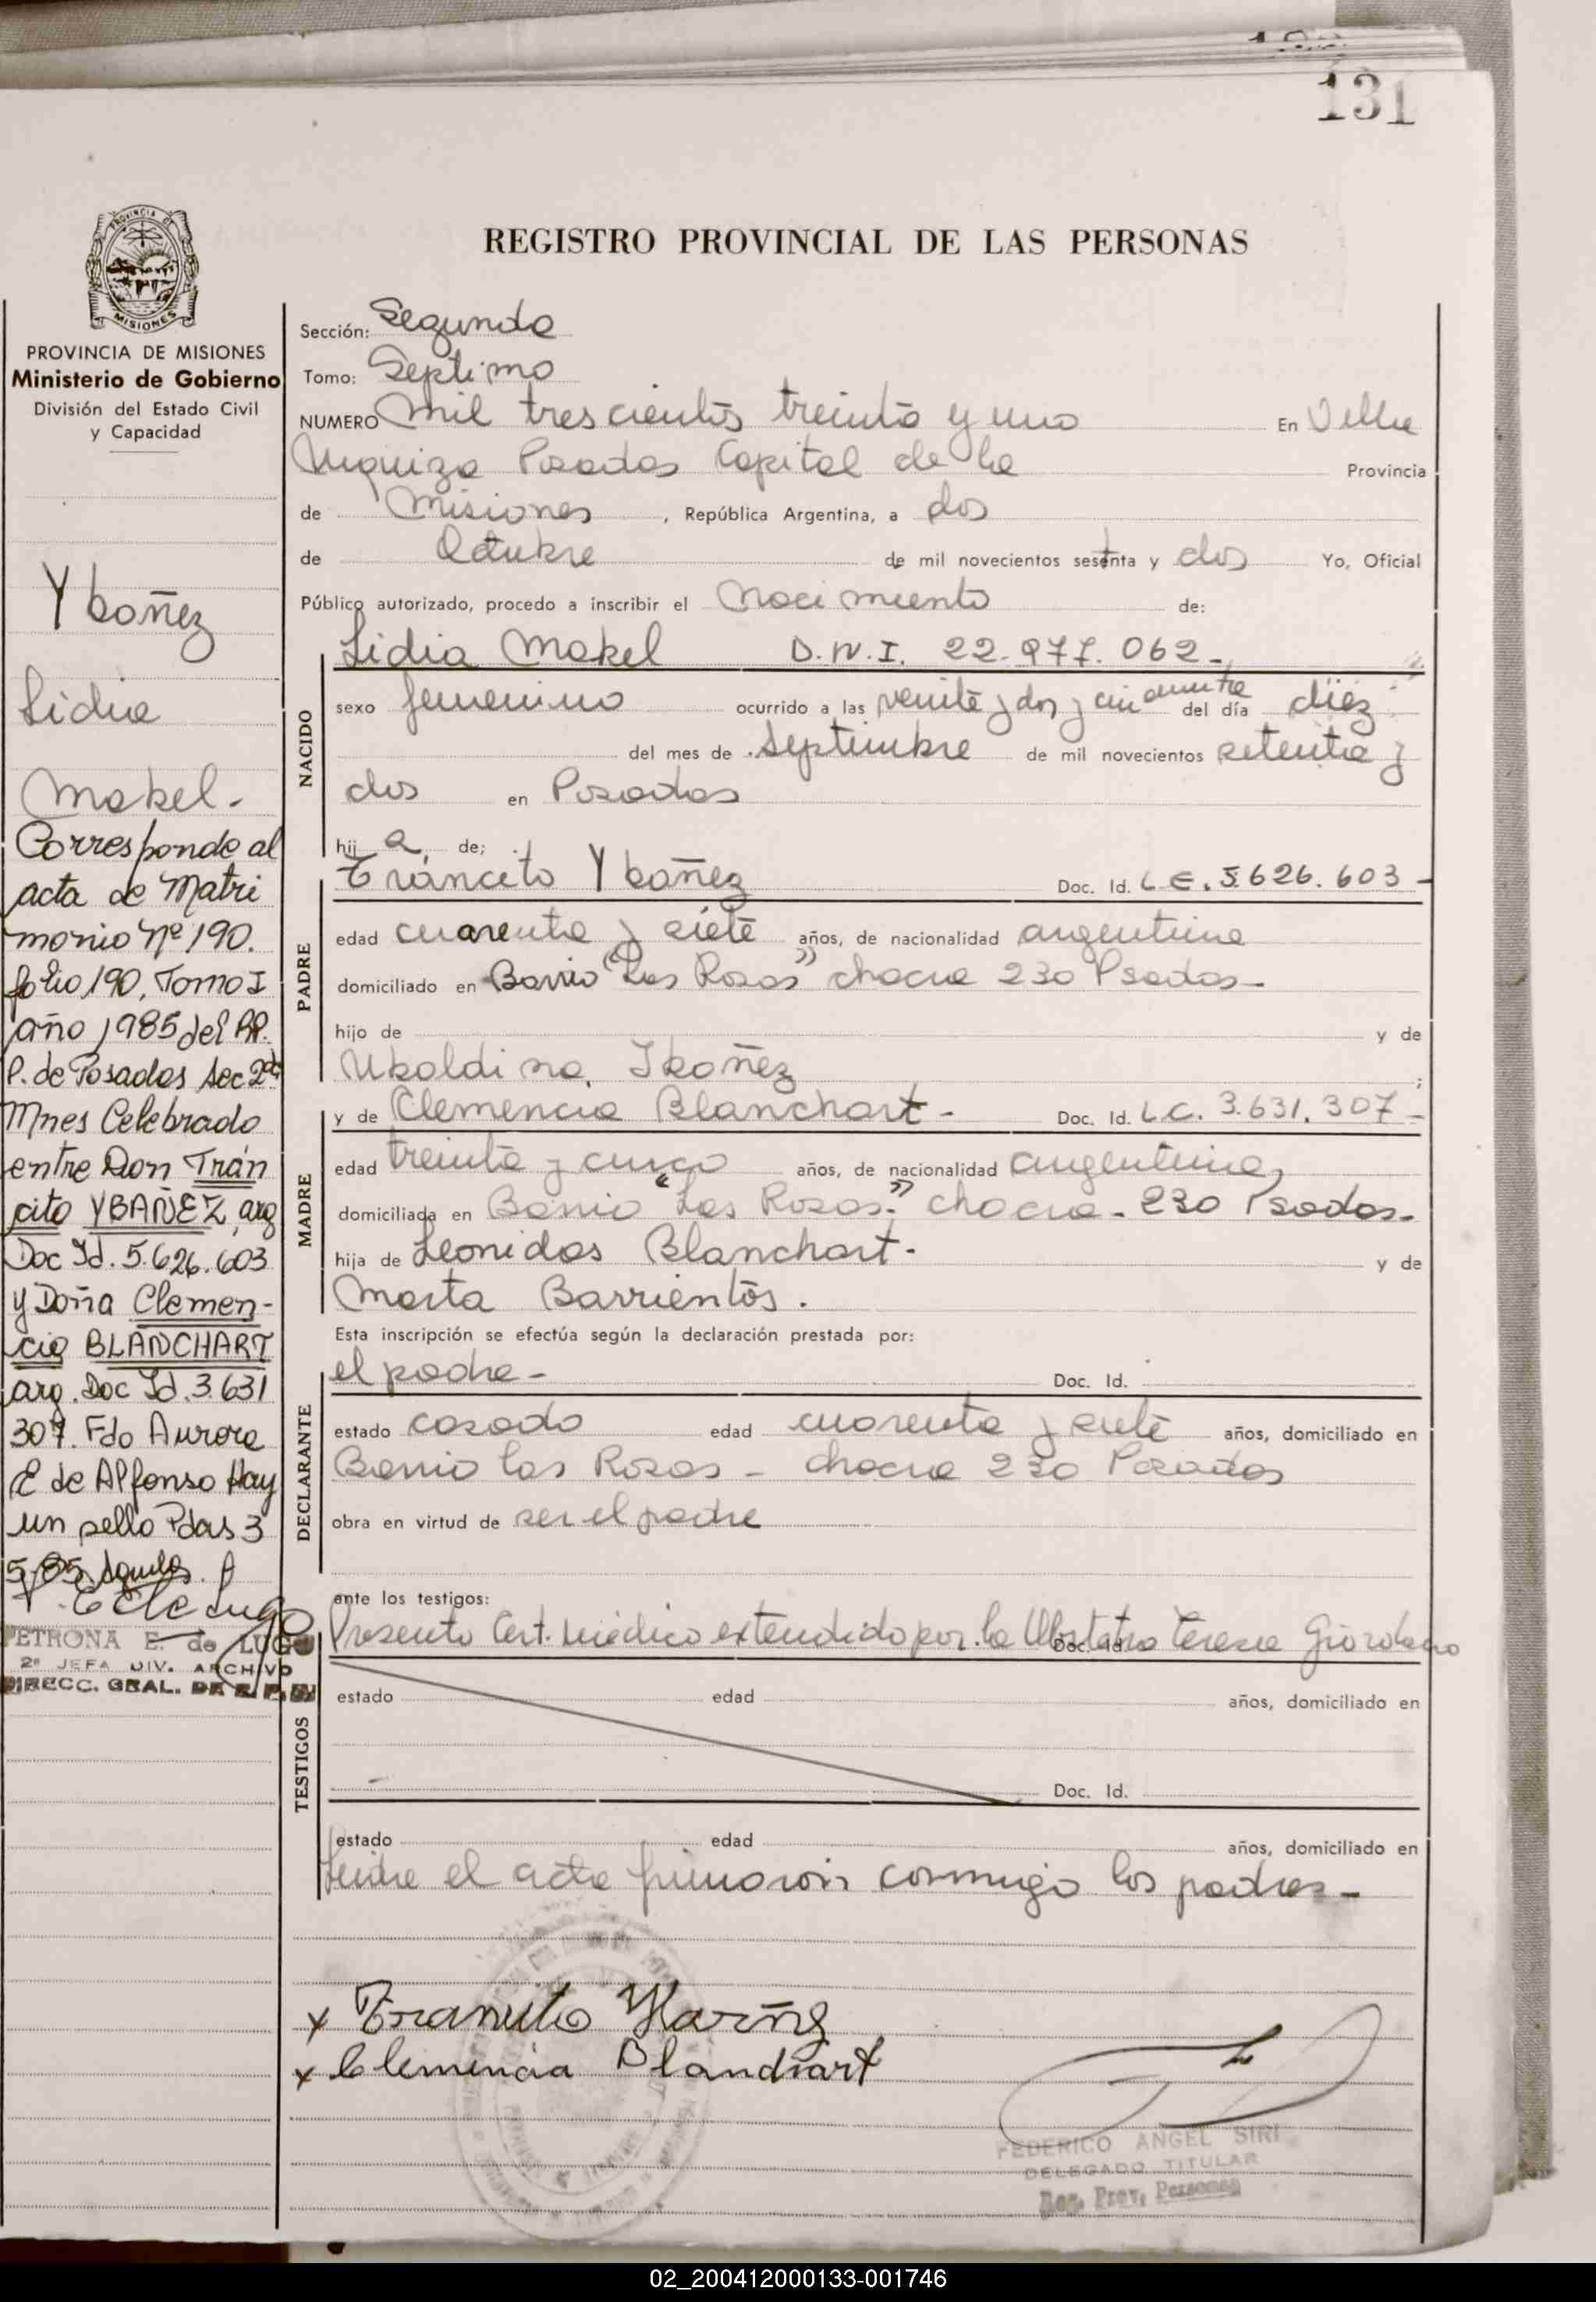 131
REGISTRO PROVINCIAL DE LAS PERSONAS
PROVINCIA DE MISIONES
Ministerio de Gobierno
División del Estado Civil
y Capacidad
Ybañez
Lidia
Mabel.
Corresponde al
acta de Matri
monio Nº 190.
folio 190, Tomo I
año 1985 del RP.
P. de Posadas Sec 2da
Mnes Celebrado
entre Don Trán
cito YBAÑEZ, arg
Doc Id. 5.626.603
y Doña Clemen-
cia BLANCHART
arg. Doc Id. 3.631
307. Fdo Aurora
E de Alfonso Hay
un sello Pdas 3
5/85
PETRONA E. de LUGO
2ª JEFA DIV. ARCHIVO
DIRECC. GRAL. DE R. P. P.
Sección: Segunda
Tomo: Septimo
NUMERO Mil trescientos treinta y uno En Villa
Urquiza Posadas Capital de la Provincia
de Misiones, República Argentina, a dos
de Octubre de mil novecientos setenta y dos Yo, Oficial
Público autorizado, procedo a inscribir el Nacimiento de:
Lidia Mabel D.N.I. 22.977.062-
NACIDO
sexo femenino ocurrido a las veinte y dos y cincuenta del día diez
del mes de Septiembre de mil novecientos setenta y
dos en Posadas
hij a de;
PADRE
Tráncito Ybañez Doc. Id. L.E. 5.626.603-
edad cuarenta y siete años, de nacionalidad argentina
domiciliado en Barrio "Las Rosas" chacra 230 Psadas-
hijo de y de
Ubaldina Ibañez ;
MADRE
y de Clemencia Blanchart- Doc. Id. L.C. 3.631.307-
edad treinta y cinco años, de nacionalidad argentina,
domiciliada en Barrio "Las Rosas." chacra - 230 Psadas-
hija de Leonidas Blanchart- y de
Marta Barrientos.
Esta inscripción se efectúa según la declaración prestada por:
DECLARANTE
el padre- Doc. Id.
estado casado edad cuarenta y siete años, domiciliado en
Barrio las Rosas - chacra 230 Posadas
obra en virtud de ser el padre
ante los testigos:
TESTIGOS
Presento Cert. Médico extendido por la Obstetra Teresa Giordano
Doc. Id.
estado edad años, domiciliado en
Doc. Id.
estado edad años, domiciliado en
Leida el acta firmaron conmigo los padres-
x Trancito Ybañez
x Clemencia Blanchart
FEDERICO ANGEL SIRI
DELEGADO TITULAR
Reg. Prov. Personas
02_200412000133-001746